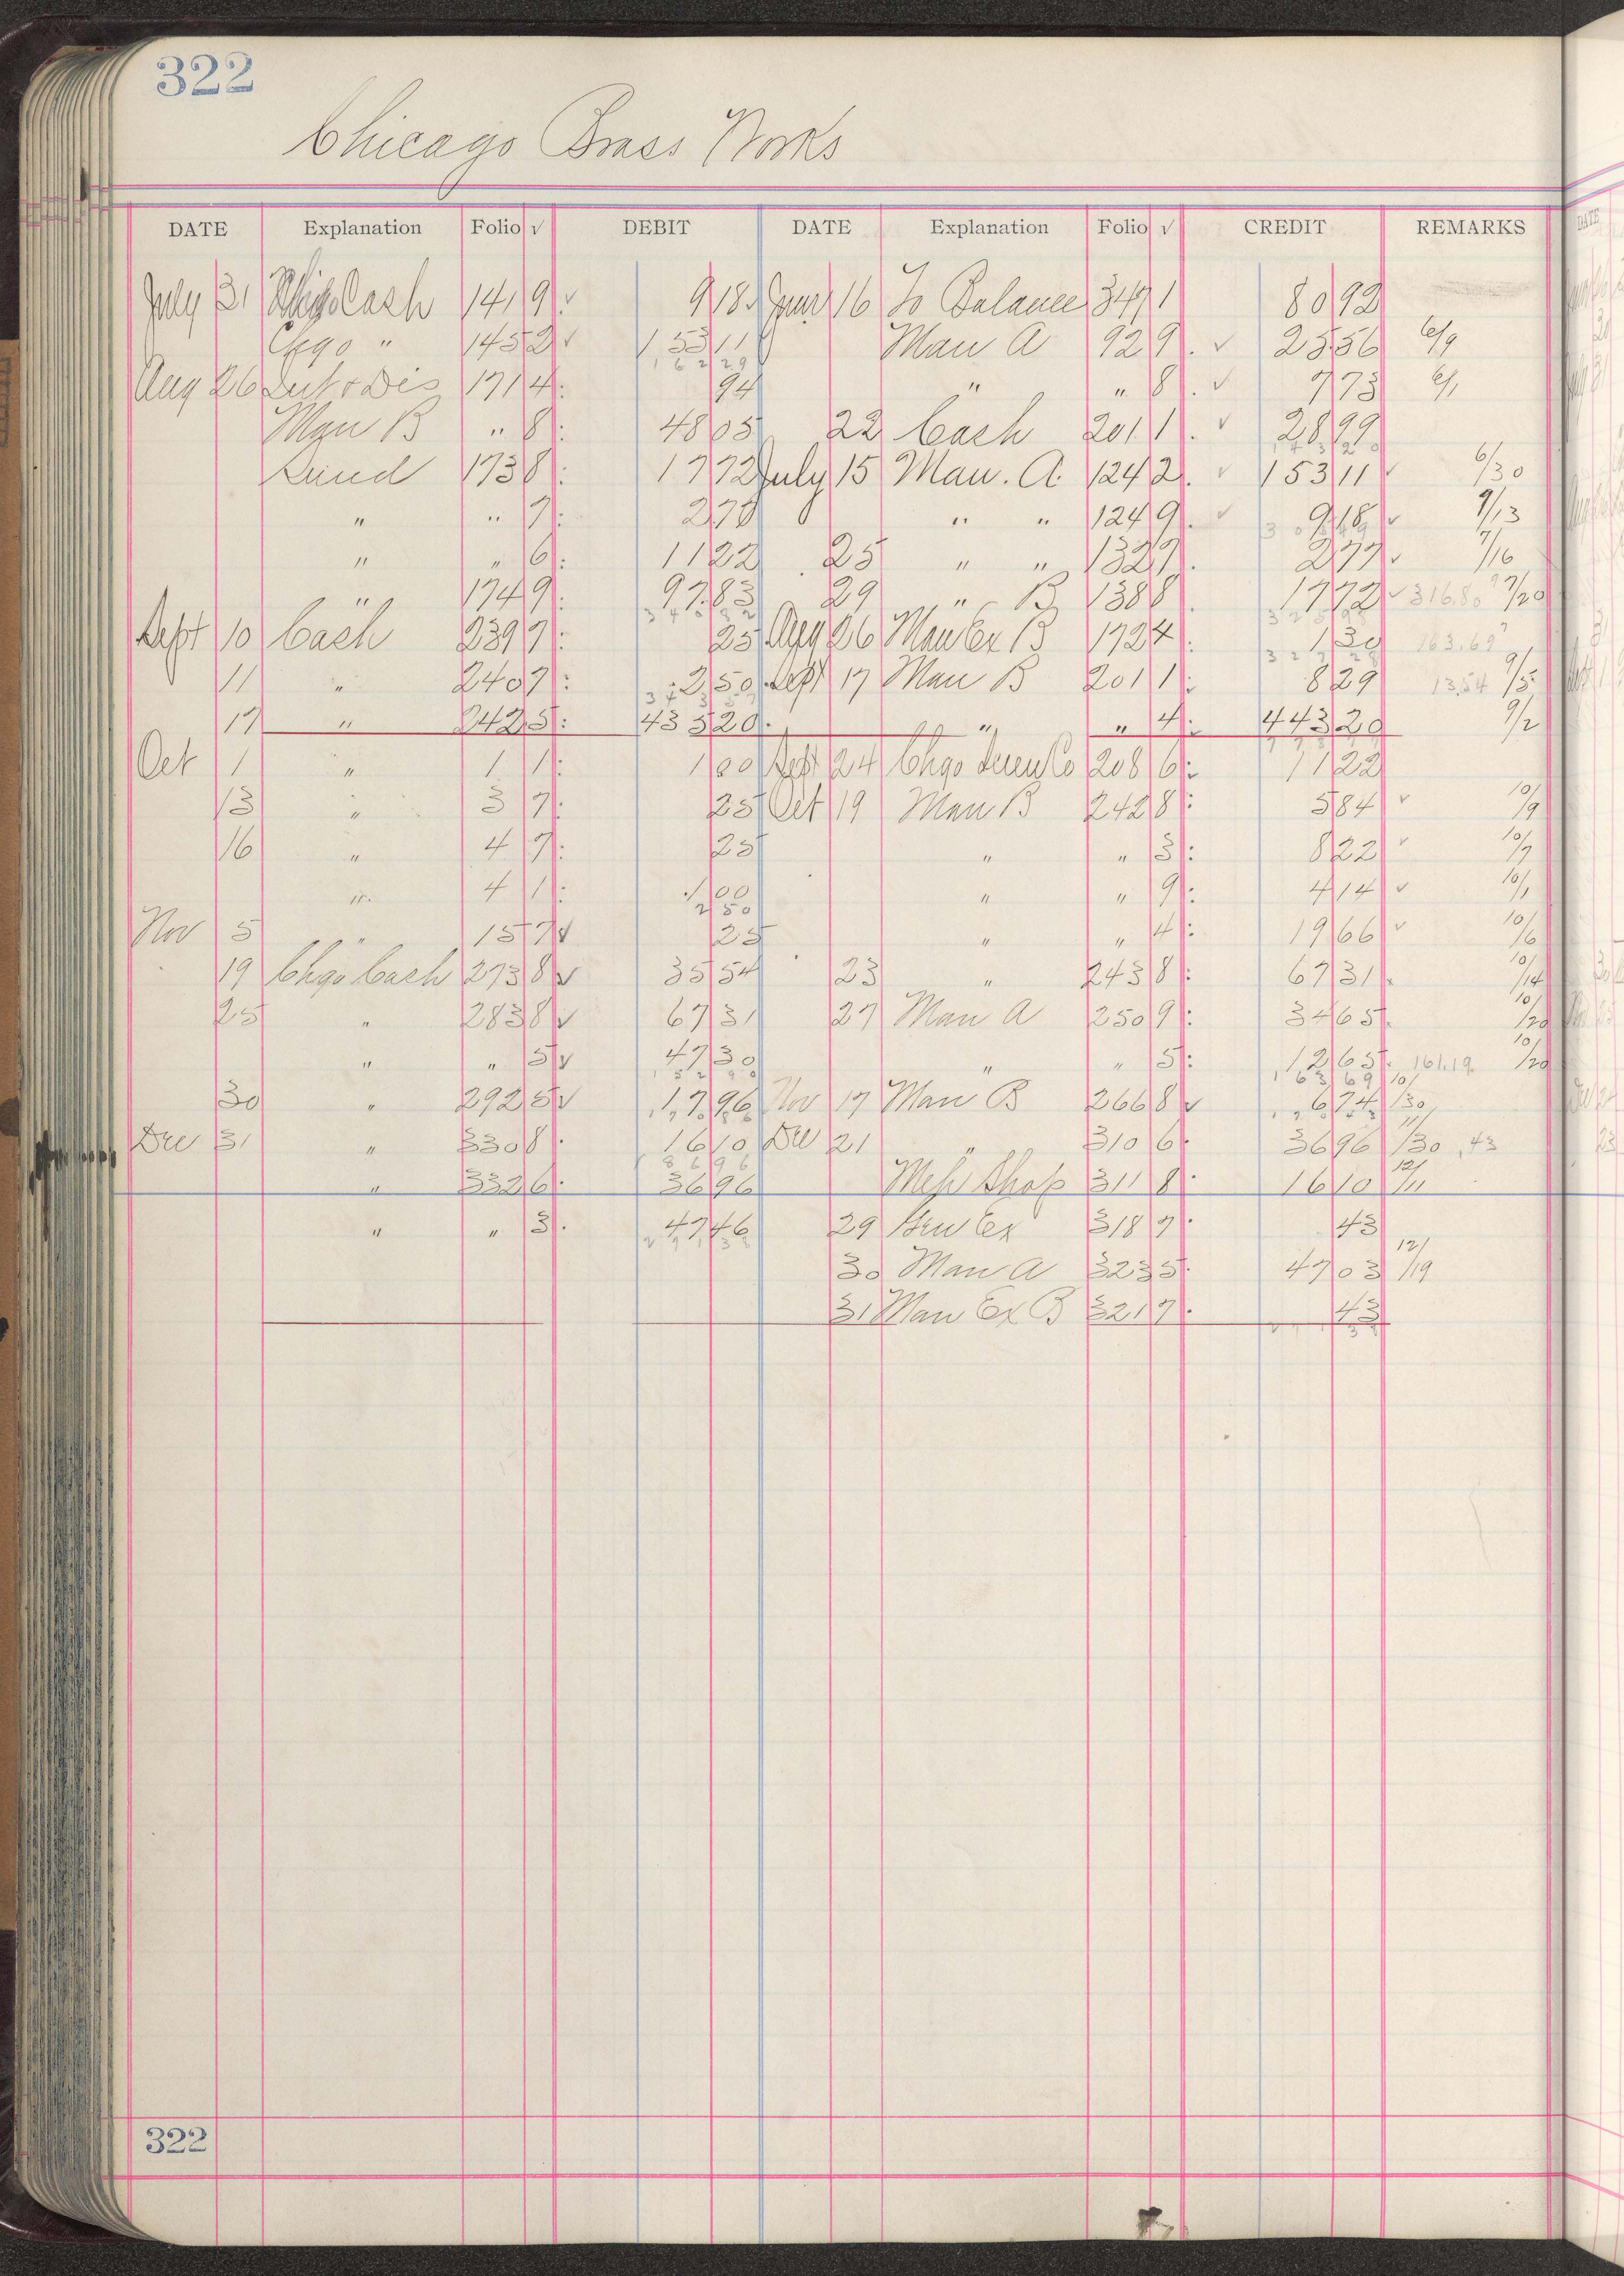 322
Chicago Brass Works
DATE Explanation Folio √ DEBIT DATE Explanation Folio √ CREDIT REMARKS
July 31 Cash 141 9 √ 9 18 June 16 To Balance 349 1 80 92
Chgo " 145 2 √ 153 11 Man A 92 9 √ 25 56 6/9
162 29
Aug 26 Int & Dis 171 4 94 " " 8 √ 7 73 6/1
Man B " 8 48 05 22 Cash 201 1 √ 28 99
173 8 17 72 July 15 Man. A 124 2 √ 153 11 √ 6/30
" " 7 2 77 " " 124 9 √ 9 18 √ 7/13
" " 6 11 22 25 " " 132 7 2 77 √ 7/16
" 174 9 97 83 29 " B 138 8 17 72 √ 316.80 7/20
Sept 10 Cash 239 7 25 Aug 26 Man Ex B 172 4 1 30 163.69
11 " 240 7 2 50 Sept 17 Man B 201 1 8 29 13.54 9/5
17 " 242 5 435 20 " " 4 443 20 9/2
Oct 1 " 1 1 1 00 Sept 24 Chgo 208 6 11 22
13 " 3 7 25 Oct 19 Man B 242 8 5 84 √ 10/9
16 " 4 7 25 " " 3 8 22 √ 10/7
" 4 1 1 00 " " 9 4 14 √ 10/1
2 50
Nov 5 " 157 √ 25 " " 4 19 66 √ 10/6
19 Chgo Cash 273 8 √ 35 54 23 " 243 8 67 31 10/14
25 " 283 8 √ 67 31 27 Man A 250 9 34 65 10/20
" " 5 √ 47 30 " " 5 12 65 161.19 10/20
163 69
30 " 292 5 √ 17 96 Nov 17 Man B 266 8 √ 6 74 10/30
Dec 31 " 330 8 16 10 Dec 21 " 310 6 36 96 11/30 .43
186 96
" 332 6 36 96 Shop 311 8 16 10 12/11
" " 3 47 46 29 Gen Ex 318 7 43
30 Man A 323 5 47 03 12/19
31 Man Ex B 321 7 43
322